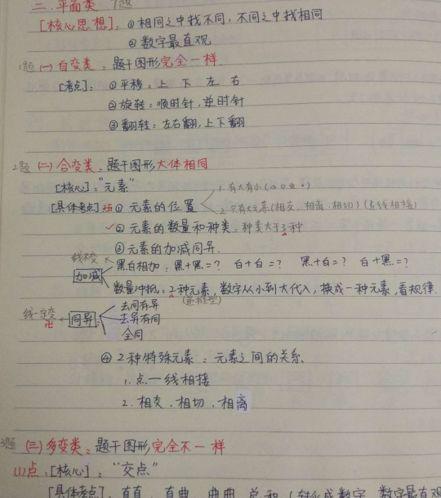 二.平面类 7题
[核心思想]：①相同之中找不同，不同之中找相同
②数字最直观
1题 (一)自变类：题干图形完全一样
[考点]：①平移：上 下 左 右
②旋转：顺时针，逆时针
③翻转：左右翻，上下翻
2题 (二)合变类：题干图形大体相同
[核心]："元素"
1.有大有小
[具体考点] ①元素的位置
2.只有大元素(相交，相离，相切)
②元素的数量和种类，种类大于3种
③元素的加减同异
线栓
黑白相加：黑+黑=？ 白+白=？ 黑+白=？ 白+黑=？
加减
数量守恒：2种元素，数字从小到大代入，换成一种元素，看规律
去同存异
线一定变 同异 去异存同
全同
④2种特殊元素：元素之间的关系
1.点—线相接
2.相交，相切，相离
3题 (三)多变类：题干图形完全不一样
(1)点：[核心]："交点"
[具体考点]：直直，直曲，曲曲，总和(转化成数字，数字最直观